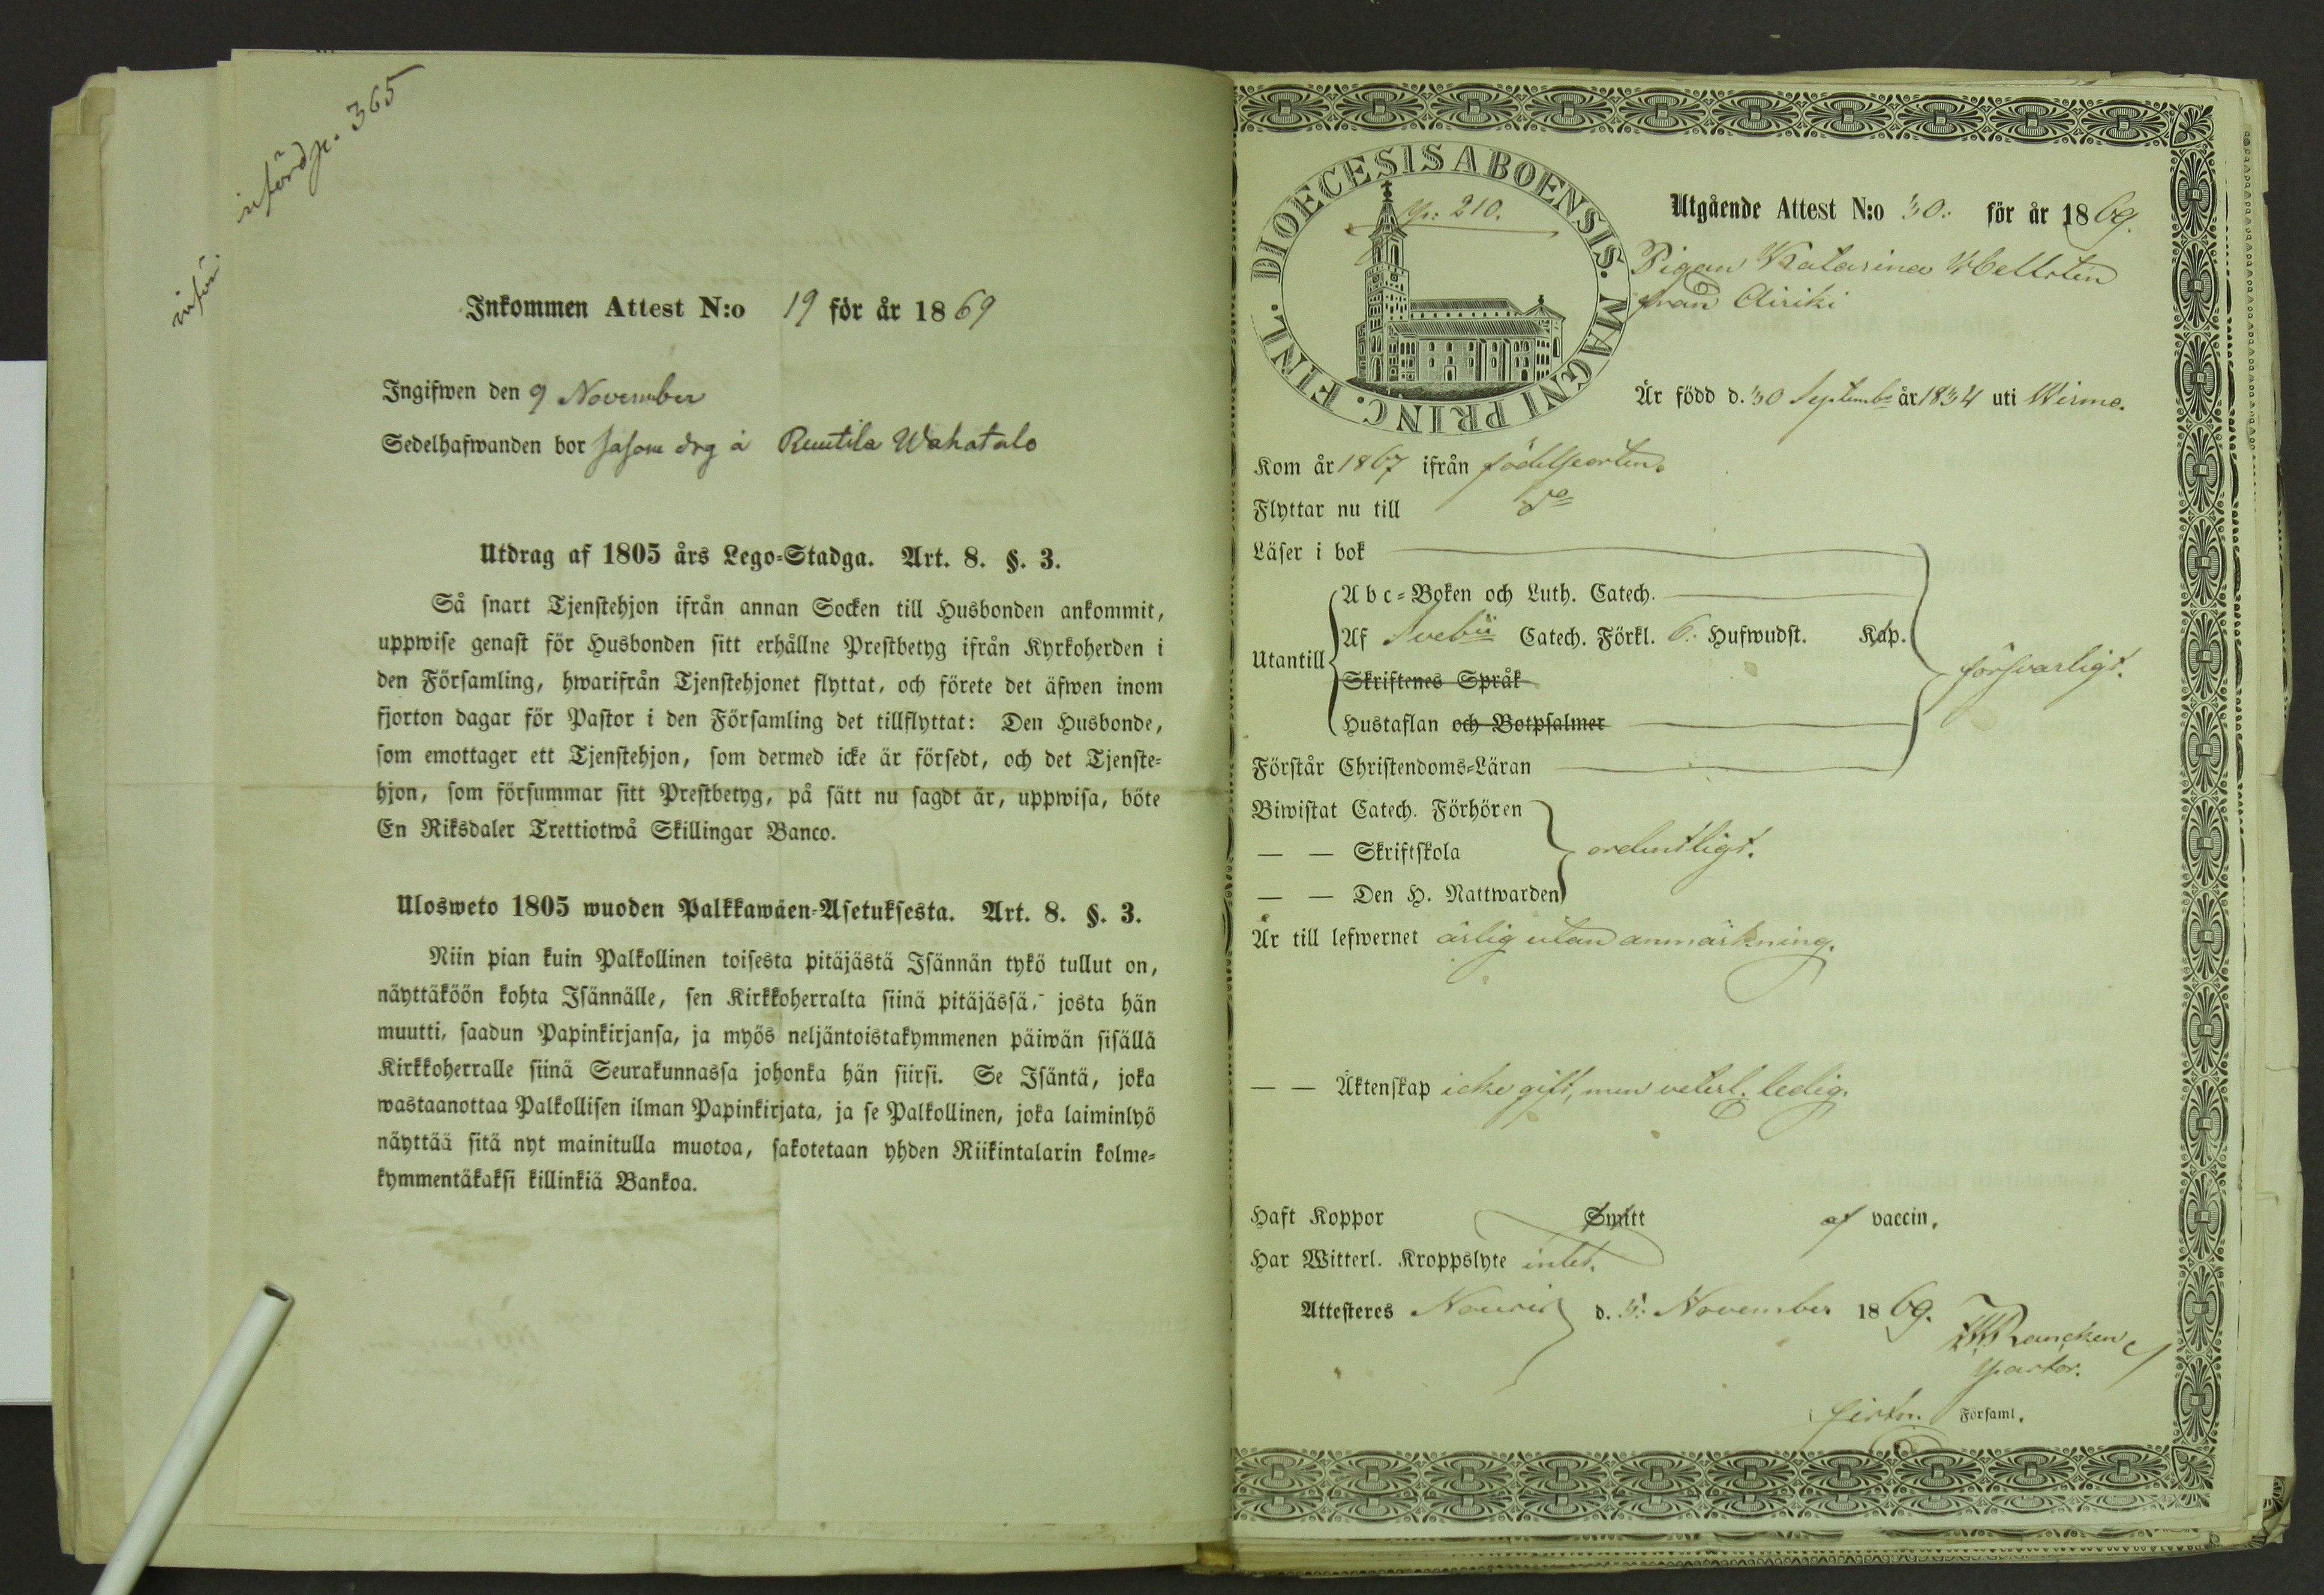 införd p. 365
inför.
Inkommen Attest N:o 19 för år 1869
Ingifwen den 9 November
Sedelhafwanden bor såsom drg å Ruutila Wahatalo
Utdrag af 1805 års Lego-Stadga. Art. 8. §. 3.
Så snart Tjenstehjon ifrån annan Socken till Husbonden ankommit,
uppwise genast för Husbonden sitt erhållne Prestbetyg ifrån Kyrkoherden i
den Församling, hwarifrån Tjenstehjonet flyttat, och förete det äfwen inom
fjorton dagar för Pastor i den Församling det tillflyttat: Den Husbonde,
som emottager ett Tjenstehjon, som dermed icke är försedt, och det Tjenste-
hjon, som försummar sitt Prestbetyg, på sätt nu sagdt är, uppwisa, böte
En Riksdaler Trettiotwå Skillingar Banco.
Ulosweto 1805 wuoden Palkkawäen-Asetuksesta. Art. 8. §. 3.
Niin pian kuin Palkollinen toisesta pitäjästä Isännän tykö tullut on,
näyttäköön kohta Isännälle, sen Kirkkoherralta siinä pitäjässä, josta hän
muutti, saadun Papinkirjansa, ja myös neljäntoistakymmenen päiwän sisällä
Kirkkoherralle siinä Seurakunnassa johonka hän siirsi. Se Isäntä, joka
wastaanottaa Palkollisen ilman Papinkirjata, ja se Palkollinen, joka laiminlyö
näyttää sitä nyt mainitulla muotoa, sakotetaan yhden Riikintalarin kolme-
kymmentäkaksi killinkiä Bankoa.
FINL. DIOECESIS ABOENSIS. MAGNI PRINC.
p: 210.
Utgående Attest N:o 30. för år 1869.
Pigan Katarina Hellstén
från Airiki
Är född d. 30 Septemb. år 1834 uti Wirmo.
Kom år 1867 ifrån födelseorten.
Flyttar nu till do
Läser i bok
Utantill
Abc-Boken och Luth. Catech.
Af Svebii Catech. Förkl. 6. Hufwudst. Kap.
Skriftenes Språk
Hustaflan och Botpsalmer
försvarligt.
Förstår Christendoms-Läran
Biwistat Catech. Förhören
— — Skriftskola ordentligt.
— — Den H. Nattwarden
Är till lefwernet ärlig utan anmärkning.
— — Äktenskap icke gift, men veterl. ledig.
Haft Koppor Smitt af vaccin.
Har Witterl. Kroppslyte intet.
Attesteres Nousis d. 5. November 1869.
Rancken
pastor.
Församl.